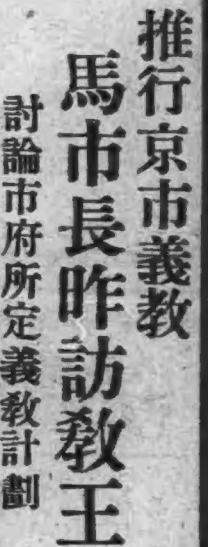 推行京市義教
馬市長昨訪教王
討論市府所定義教計劃